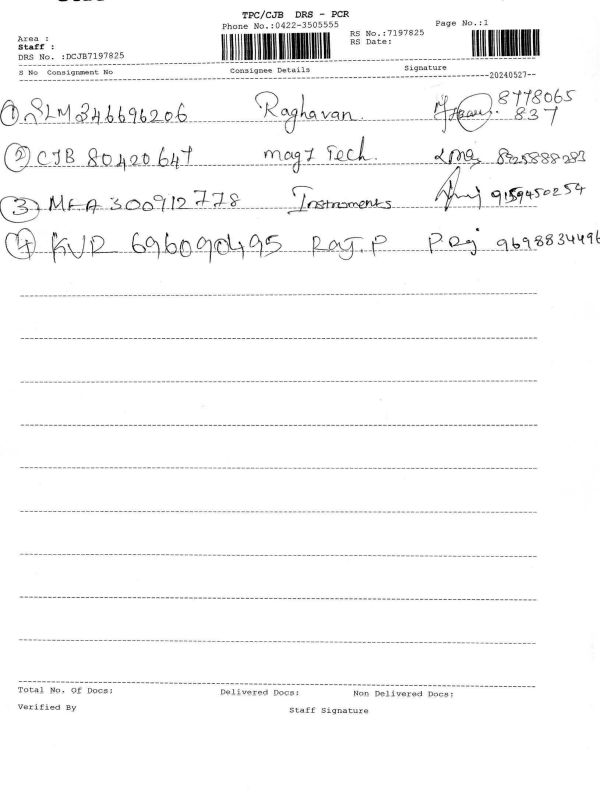 TPC/CJB DRS - PCR
Phone No.:0422-3505555
Page No.:1
RS No.:7197825
RS Date:
Area :
Staff :
DRS No. :DCJB7197825
S No Consignment No Consignee Details Signature
20240527
1 SLM346696206 Raghavan. 8778065
837
2 CJB 80420647 mag7 Tech. 8925888283
3 MAA 300912778 Instroments 9159450254
4 KVR 696090495 Raj.P P.Raj 9698834496
Total No. Of Docs: Delivered Docs: Non Delivered Docs:
Verified By Staff Signature